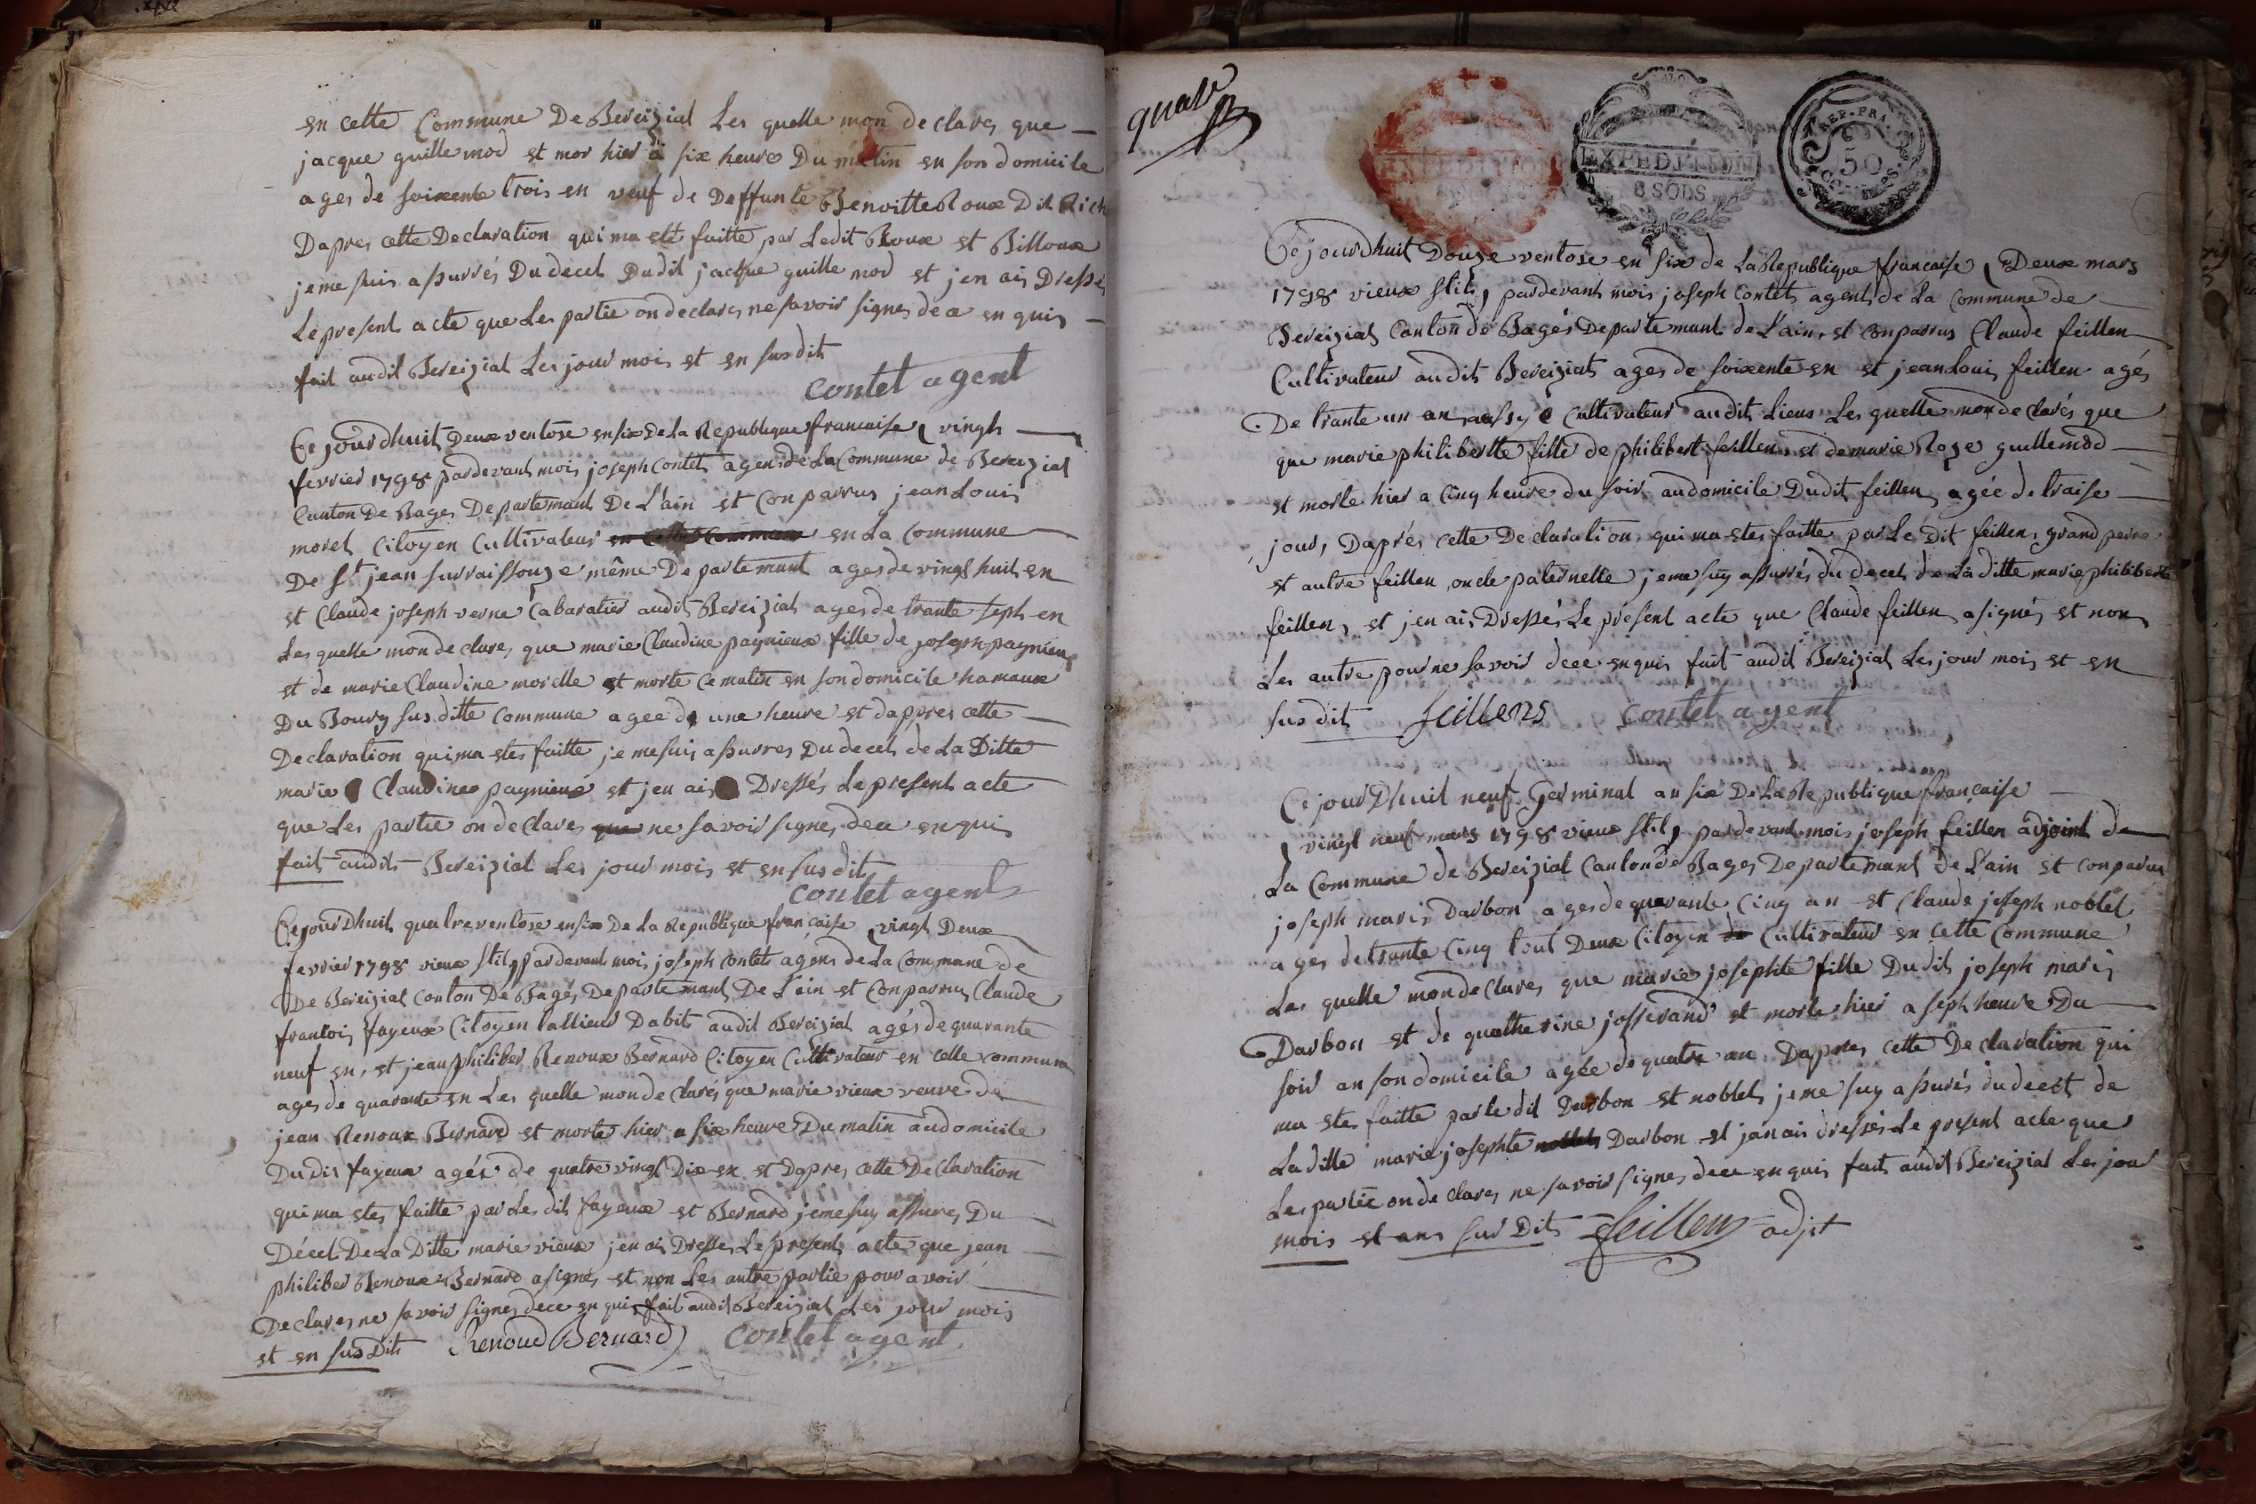 en cette Commune De Bereiziat Les quelle mon declarez que
jacque guille mod est mor hier à six heure Du matin en son domicile
ages de soixente trois en veuf de Deffunte Benoitte Roux Dit Rich
Dapres cette Declaration qui ma eté faitte par Ledit Roux et Billoux
jeme suis assurrés Du decet Dudit jacque guille mod et jen ais Dressé
Le present acte que Les partie on declarez ne savoir signer de ce enquis
fait audit Bereiziat Les jour mois et en susdit
contet agent
Ce jourdhuit Deux ventose en six De La Republique francaise vingt
fevrier 1798 pardevant mois joseph Contet agent de La Commune de Bereziat
Canton De Bages Departemant De L'ain est Conparrus jean Louis
morel Citoyen Cultivateur en La Commune
De St jean surraissouze même Departemant ages de vingt huit en
et Claude joseph verne Cabaratier audit Bereiziat ages de trante seph en
Les quelle mon de clarez que marie Claudine pagnieux fille de joseph pagnieux
et de marie Claudine morelle et morte ce matin en son domicile hamaux
Du Bourg sus ditte Commune agee de une heure et dappres cette
Declaration qui ma etes faitte je me suis assurres Du decet de La Ditte
marie Claudine pagnieux et jen ais Dressés Le present acte
que Les partie on declares que ne savoir signer de ce enqui
fait audit Bereiziat Les jour mois et en susdit
contet agent
Ce jourDhuit quatre ventose en six De La Republique francaise vingt Deux
fevrier 1798 vieux stil pardevant mois joseph Contet agent de La Commune de
De Bereiziat Canton De Bagés Departemant De L'ain et Conparrus Claude
francois fayeux Citoyen tallieur Dabit audit Bereiziat agés de quarante
neuf en, et jean philiber Renoux Bernard Citoyen Cultivateur en cette commune
ages de quarante en Les quelle mon de clarés que marie vieux veuve de
jean Renoux Bernard et morte hier a six heure Du matin audomicile
Dudit fayeux agés de quatre vingt Dix en et Dapres cette Declaration
qui ma etes faitte par Les dit fayeux et Bernard jeme suy assures Du
Décet De La Ditte marie vieux jen ais Dresse Le present acte que jean
philiber Renoux Bernard a signés et non Les autre partie pour avoir
Declarer ne savoir signer de ce enquis fait audit Bereiziat Les jour mois
et en susDit Renoud Bernard contet agent
quatre
EXPEDITION
EXPEDITION
6 SODS
REP. FRA.
50
CENTIMES
Ce jourdhuit Douze ventose en six de La Republique francaise Deux mars
1798 vieux stil, pardevant mois joseph Contet agent de La Commune de
Bereiziat Canton de Bagés Departemant de L'ain, et conparrus Claude feillen
Cultivateur audit Bereiziat ages de soixente en et jean Louis feillen agés
De trante un an aussy Cultivateur audit Lieux Les quelle mon declarés que
que marie philibertte fille de philibert feillen et de marie Roze guillemod
et morte hier a Cinq heure du soir audomicile Dudit feillen, agée de traise
jour, Daprés cette Declaration qui ma etes faitte par Le Dit feillen, grand perre
et autre feillen oncle paternelle jeme suy assurrés du decet de La ditte marie philiberte
feillen, et jen ais Dressés Le présent acte que Claude feillen a signés et non
Les autre pour ne savoir de ce enquis fait audit Bereiziat Les jour mois et en
susdit feillens contet agent
Ce jourDhuit neuf Germinal an six De La Republique française
vingt neuf mars 1798 vieux stil, pardevant mois joseph feillen adjoint de
La Commune de Bereiziat Canton de Bages Departemant de L'ain et conparus
joseph marie Darbon ages de quarante Cinq an et Claude joseph noblet
ages de trante Cinq tout Deux Citoyen Cultivateur en cette Commune
Les quelle mon declares que marie josephte fille Dudit joseph marie
Darbon et de quatherine josserand et morte hier a seph heure Du
soir an son domicile agée de quatre an Dappres cette Declaration qui
ma etes faitte par le dit Darbon et noblet jeme suy assurés du decet de
La ditte marie josephte Darbon et janais dressés Le present acte que
Les partie on declares ne savoir signer de ce enquis fait audit Bereiziat Les jour
mois et ans sus Dit feillen adjt